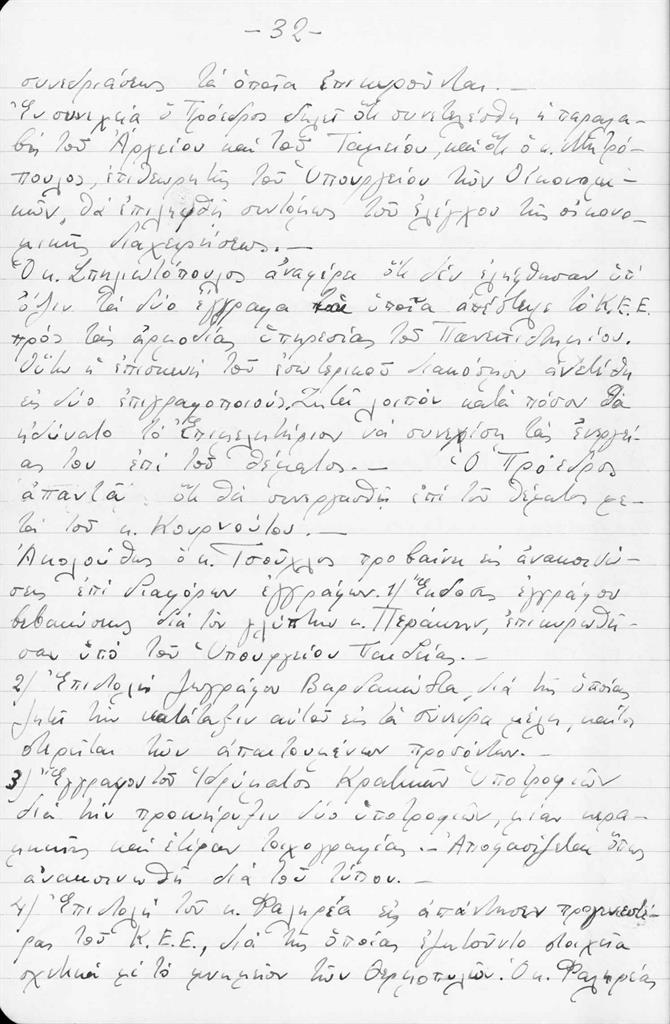 -32-
συνεδριάσεως τά ὁποῖα ἐπικυροῦνται.—
Ἐν συνεχείᾳ ὁ Πρόεδρος δηλεῖ ὅτι συνετελέσθη ἡ παραλα-
βή τοῦ Ἀρχείου καί τοῦ Ταμείου, καί ὅτι ὁ κ. Μητρό-
πουλος, ἐπιθεωρητής τοῦ Ὑπουργείου τῶν Οἰκονομι-
κῶν, θά ἐπιληφθῇ συντόμως τοῦ ἐλέγχου τῆς οἰκονο-
μικῆς διαχειρήσεως.—
Ὁ κ. Σπηλιωτόπουλος ἀναφέρει ὅτι δέν ἐλήφθησαν ὑπ'
ὄψιν τά δύο ἔγγραφα τά ὁποῖα ἀπέστειλε τό Κ.Ε.Ε.
πρός τάς ἁρμοδίας ὑπηρεσίας τοῦ Πανεπιστημίου.
Οὕτω ἡ ἐπισκευή τοῦ ἐσωτερικοῦ διακόσμου ἀνετέθη
εἰς δύο ἐπιγραφοποιούς. Ζητεῖ λοιπόν κατά πόσον θά
ἠδύνατο τό Ἐπιμελητήριον νά συνεχίσῃ τάς ἐνεργεί-
ας του ἐπί τοῦ θέματος.— Ὁ Πρόεδρος
ἀπαντᾶ ὅτι θά συνεργασθῇ ἐπί τοῦ θέματος με-
τά τοῦ κ. Κουρνούτου.—
Ἀκολούθως ὁ κ. Τσοῦχλος προβαίνει εἰς ἀνακοινώ-
σεις ἐπί διαφόρων ἐγγράφων. 1/ Ἔκδοσις ἐγγράφου
βεβαιώσεως διά τόν γλύπτην κ. Περάκην, ἐπικυρωθεῖ-
σαν ὑπό τοῦ Ὑπουργείου Παιδείας.—
2/ Ἐπιστολή ζωγράφου Βαρδακώστα, διά τῆς ὁποίας
ζητεῖ τήν κατάταξιν αὐτοῦ εἰς τά σύνεδρα μέλη, καίτοι
στερεῖται τῶν ἀπαιτουμένων προσόντων.—
3/ Ἔγγραφον τοῦ Ἱδρύματος Κρατικῶν Ὑποτροφιῶν
διά τήν προκήρυξιν δύο ὑποτροφιῶν, μίαν κερα-
μικῆς καί ἑτέραν τοιχογραφίας.— Ἀποφασίζεται ὅπως
ἀνακοινωθῇ διά τοῦ τύπου.—
4/ Ἐπιστολή τοῦ κ. Φαληρέα εἰς ἀπάντησιν προγενεστέ-
ρας τοῦ Κ.Ε.Ε., διά τῆς ὁποίας ἐζητοῦντο στοιχεῖα
σχετικά μέ τό μνημεῖον τῶν Θερμοπυλῶν. Ὁ κ. Φαληρέας